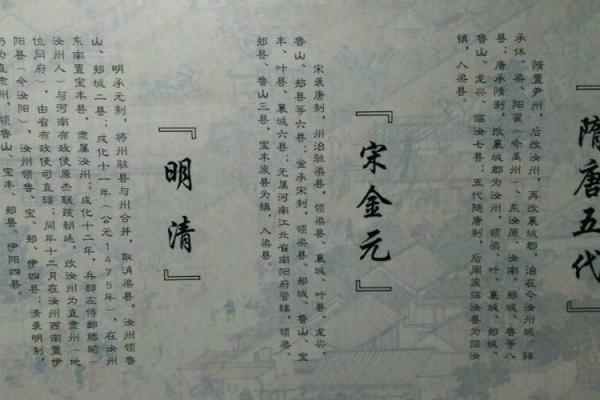 『隋唐五代』
隋置尹州，后改汝州，再改襄城郡，治在今汝州城，辖
承休、梁、阳翟（今禹州）、东汝原、汝南、郏城、鲁等八
县；唐承隋制，改襄城郡为汝州，领梁、叶、襄城、郏城、
鲁山、龙兴、临汝七县；五代随唐制，后周废临汝县为临汝
镇，入梁县。
『宋金元』
宋承唐制，州治驻梁县，领梁县、襄城、叶县、龙兴、
鲁山、郏县等六县；金承宋制，领梁县、郏城、鲁山、宝
丰、叶县、襄城六县；元属河南江北省南阳府管辖，领梁、
郏县、鲁山三县，宝丰废县为镇，入梁县。
『明清』
明承元制，将州驻县与州合并，取消梁县，汝州领鲁
山、郏城二县；成化十一年（公元1475年），在汝州
东南置宝丰县，隶属汝州；成化十二年，兵部左侍郎滕昭（
汝州人）与河南布政使原杰联疏朝廷，改汝州为直隶州（地
位同府），由省布政使司直辖；同年十二月在汝州西南置伊
阳县（今汝阳），汝州领鲁、宝、郏、伊四县；清承明制，
仍为直隶州，领鲁山、宝丰、郏县、伊阳四县。